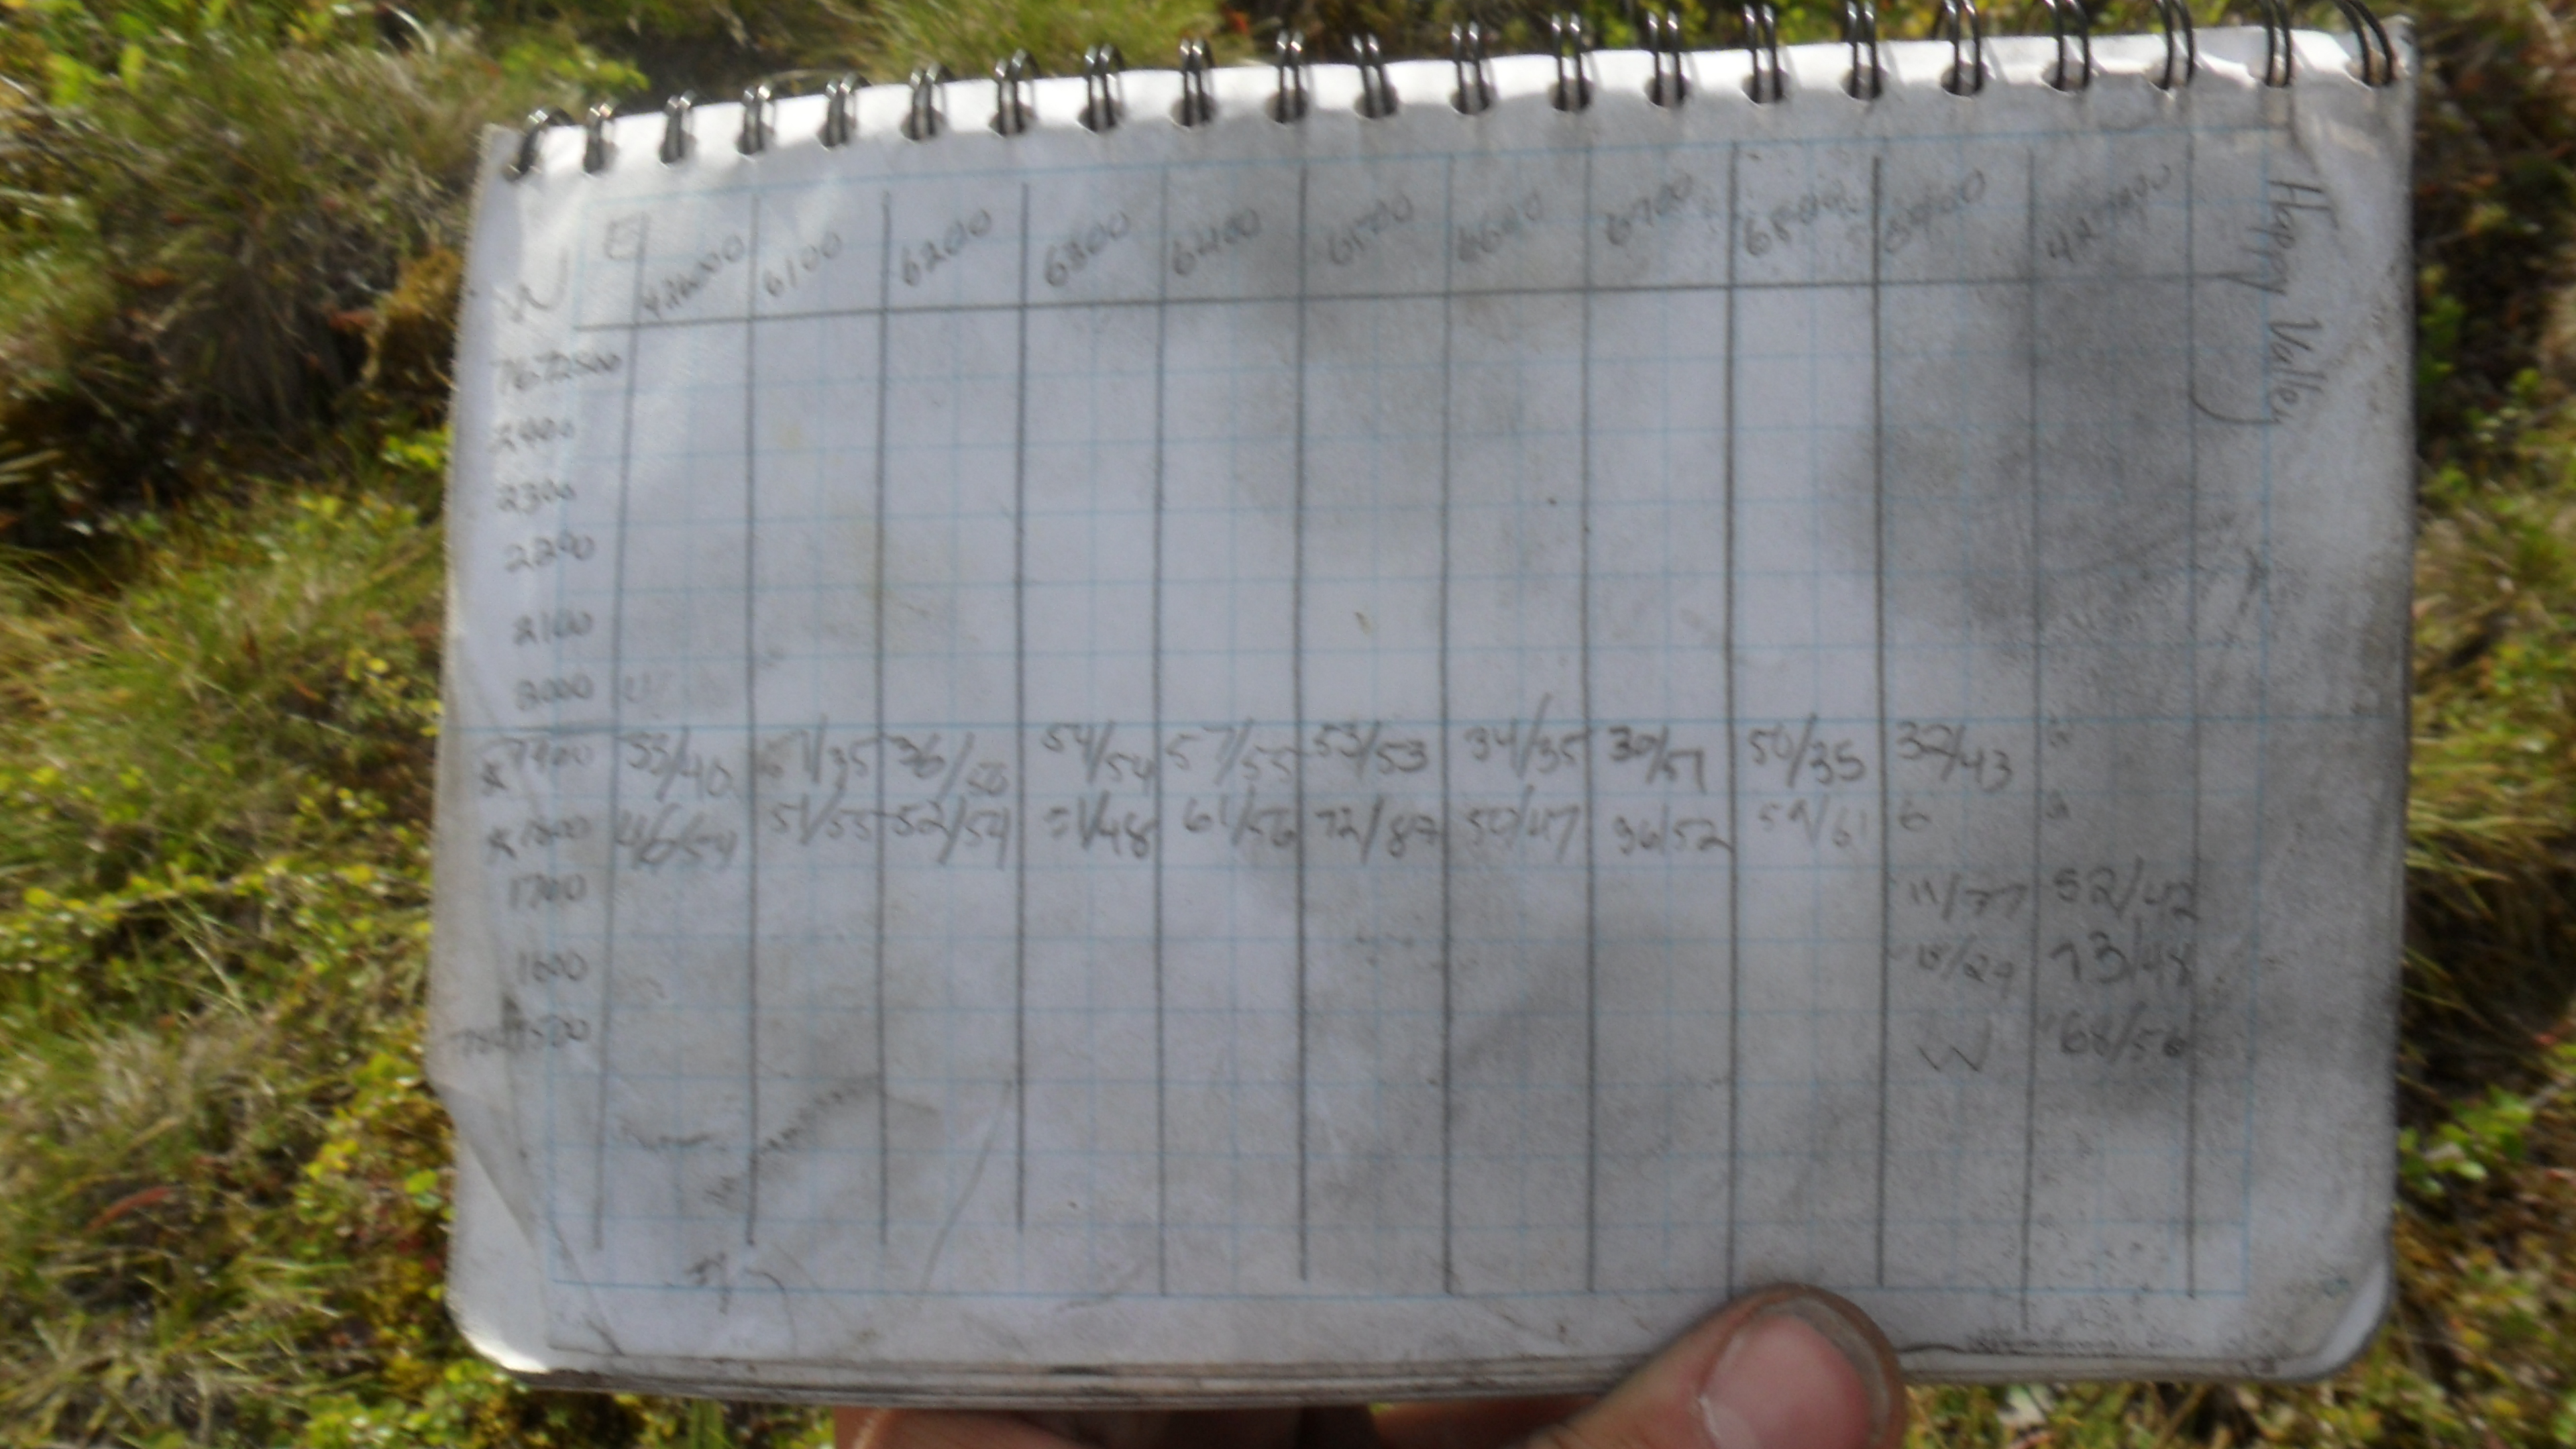 Happy Valley
E 426000 6100 6200 6300 6400 6500 6600 6700 6800 6900 427000
N
7672500
2400
2300
2200
2100
2000
1900 53/40 51/35 36/50 54/54 57/55 53/53 34/35 30/51 50/35 32/43
1800 46/54 51/55 52/54 51/48 61/56 72/87 50/47 36/52 59/61 6
1700 11/77 52/42
1600 18/29 73/48
1500 W 68/56